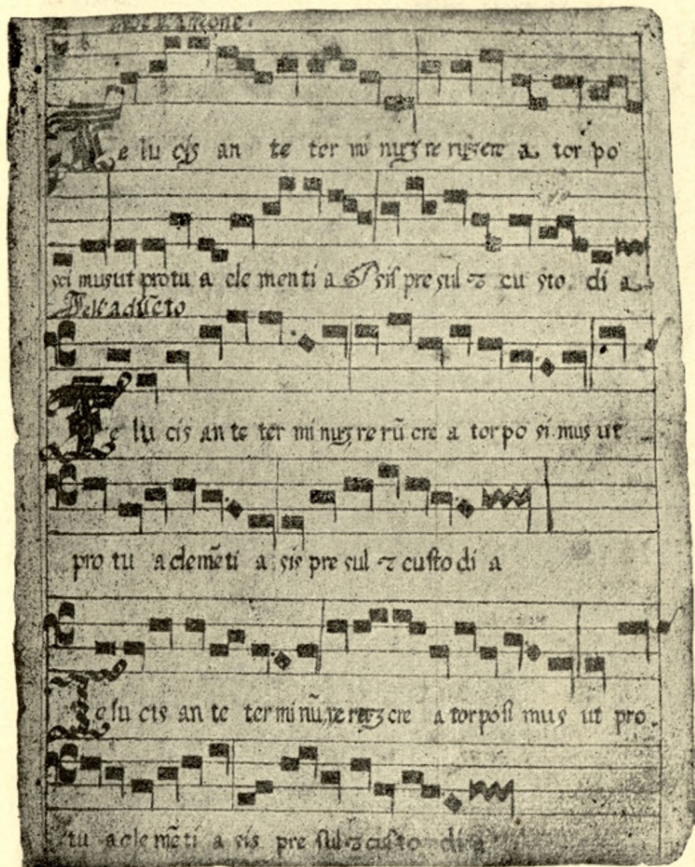 Te lu cis an te ter mi nuʒ re ruʒ cre a tor po
sci mus ut pro tu a cle men ti a sis pre sul ⁊ cu sto di a
Te lu cis an te ter mi nuʒ re rū cre a tor po si mus ut
pro tu a clemēti a sis pre sul ⁊ custo di a
Te lu cis an te ter mi nū re ruʒ cre a tor posi mus ut pro
tu a clemēti a sis pre sul ⁊ custo di a